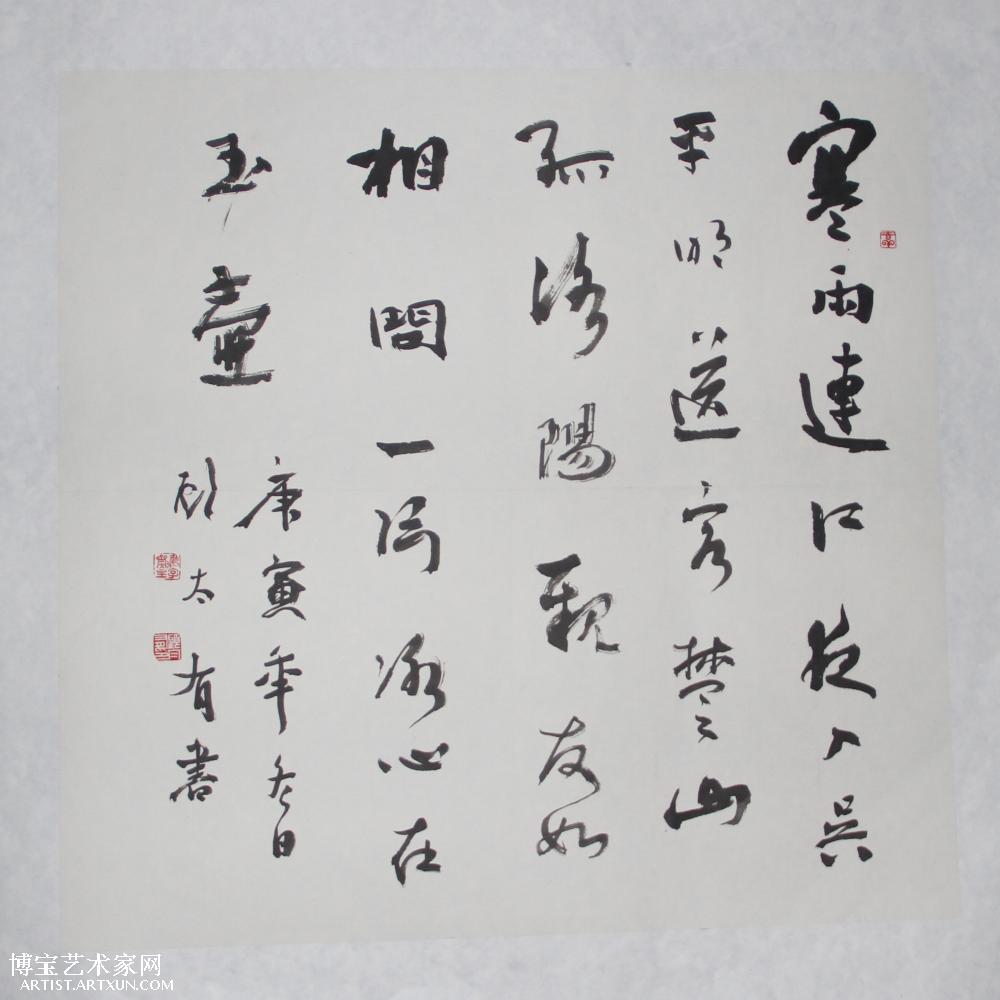 寒雨連江夜入吴
平明送客楚山
孤洛陽親友如
相問一片冰心在
玉壺
庚寅年冬日
顾太有書
博宝艺术家网
ARTIST.ARTXUN.COM